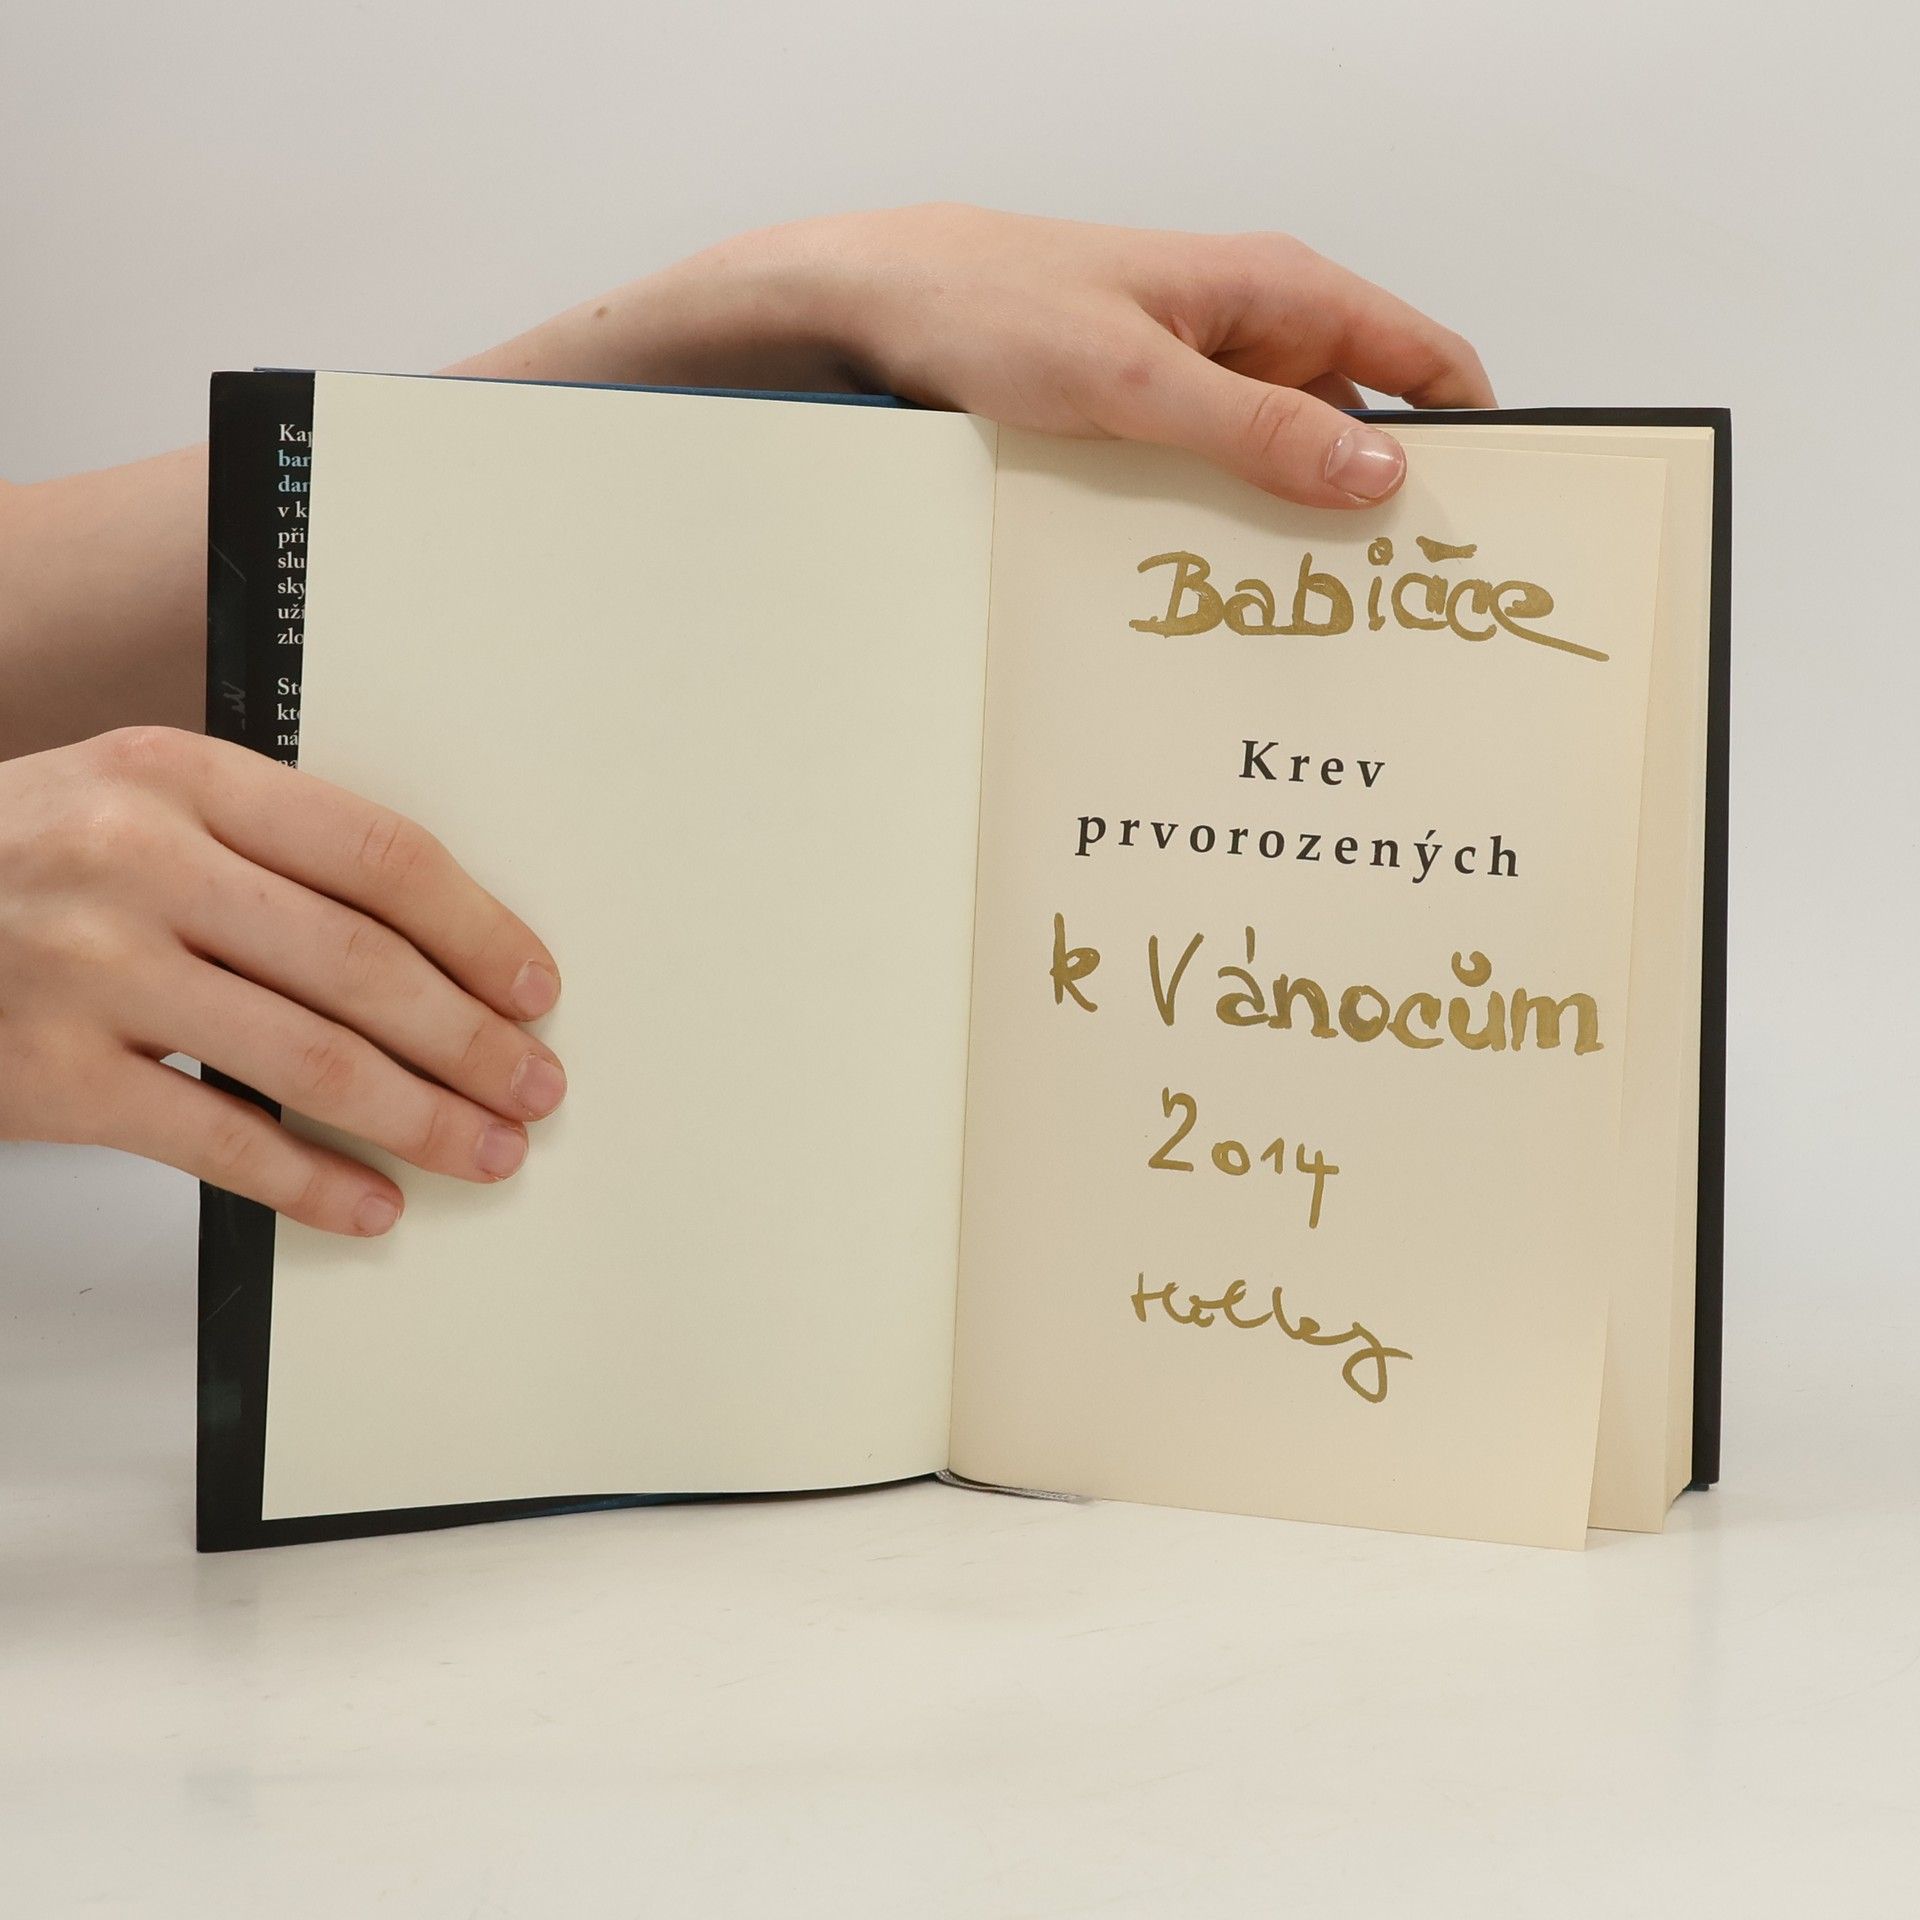 Kap
bar
dar
v k
při
slu
sky
uží
zlo
Ste
kte
ná
na
Babičce
Krev
prvorozených
k Vánocům
2014
Holky